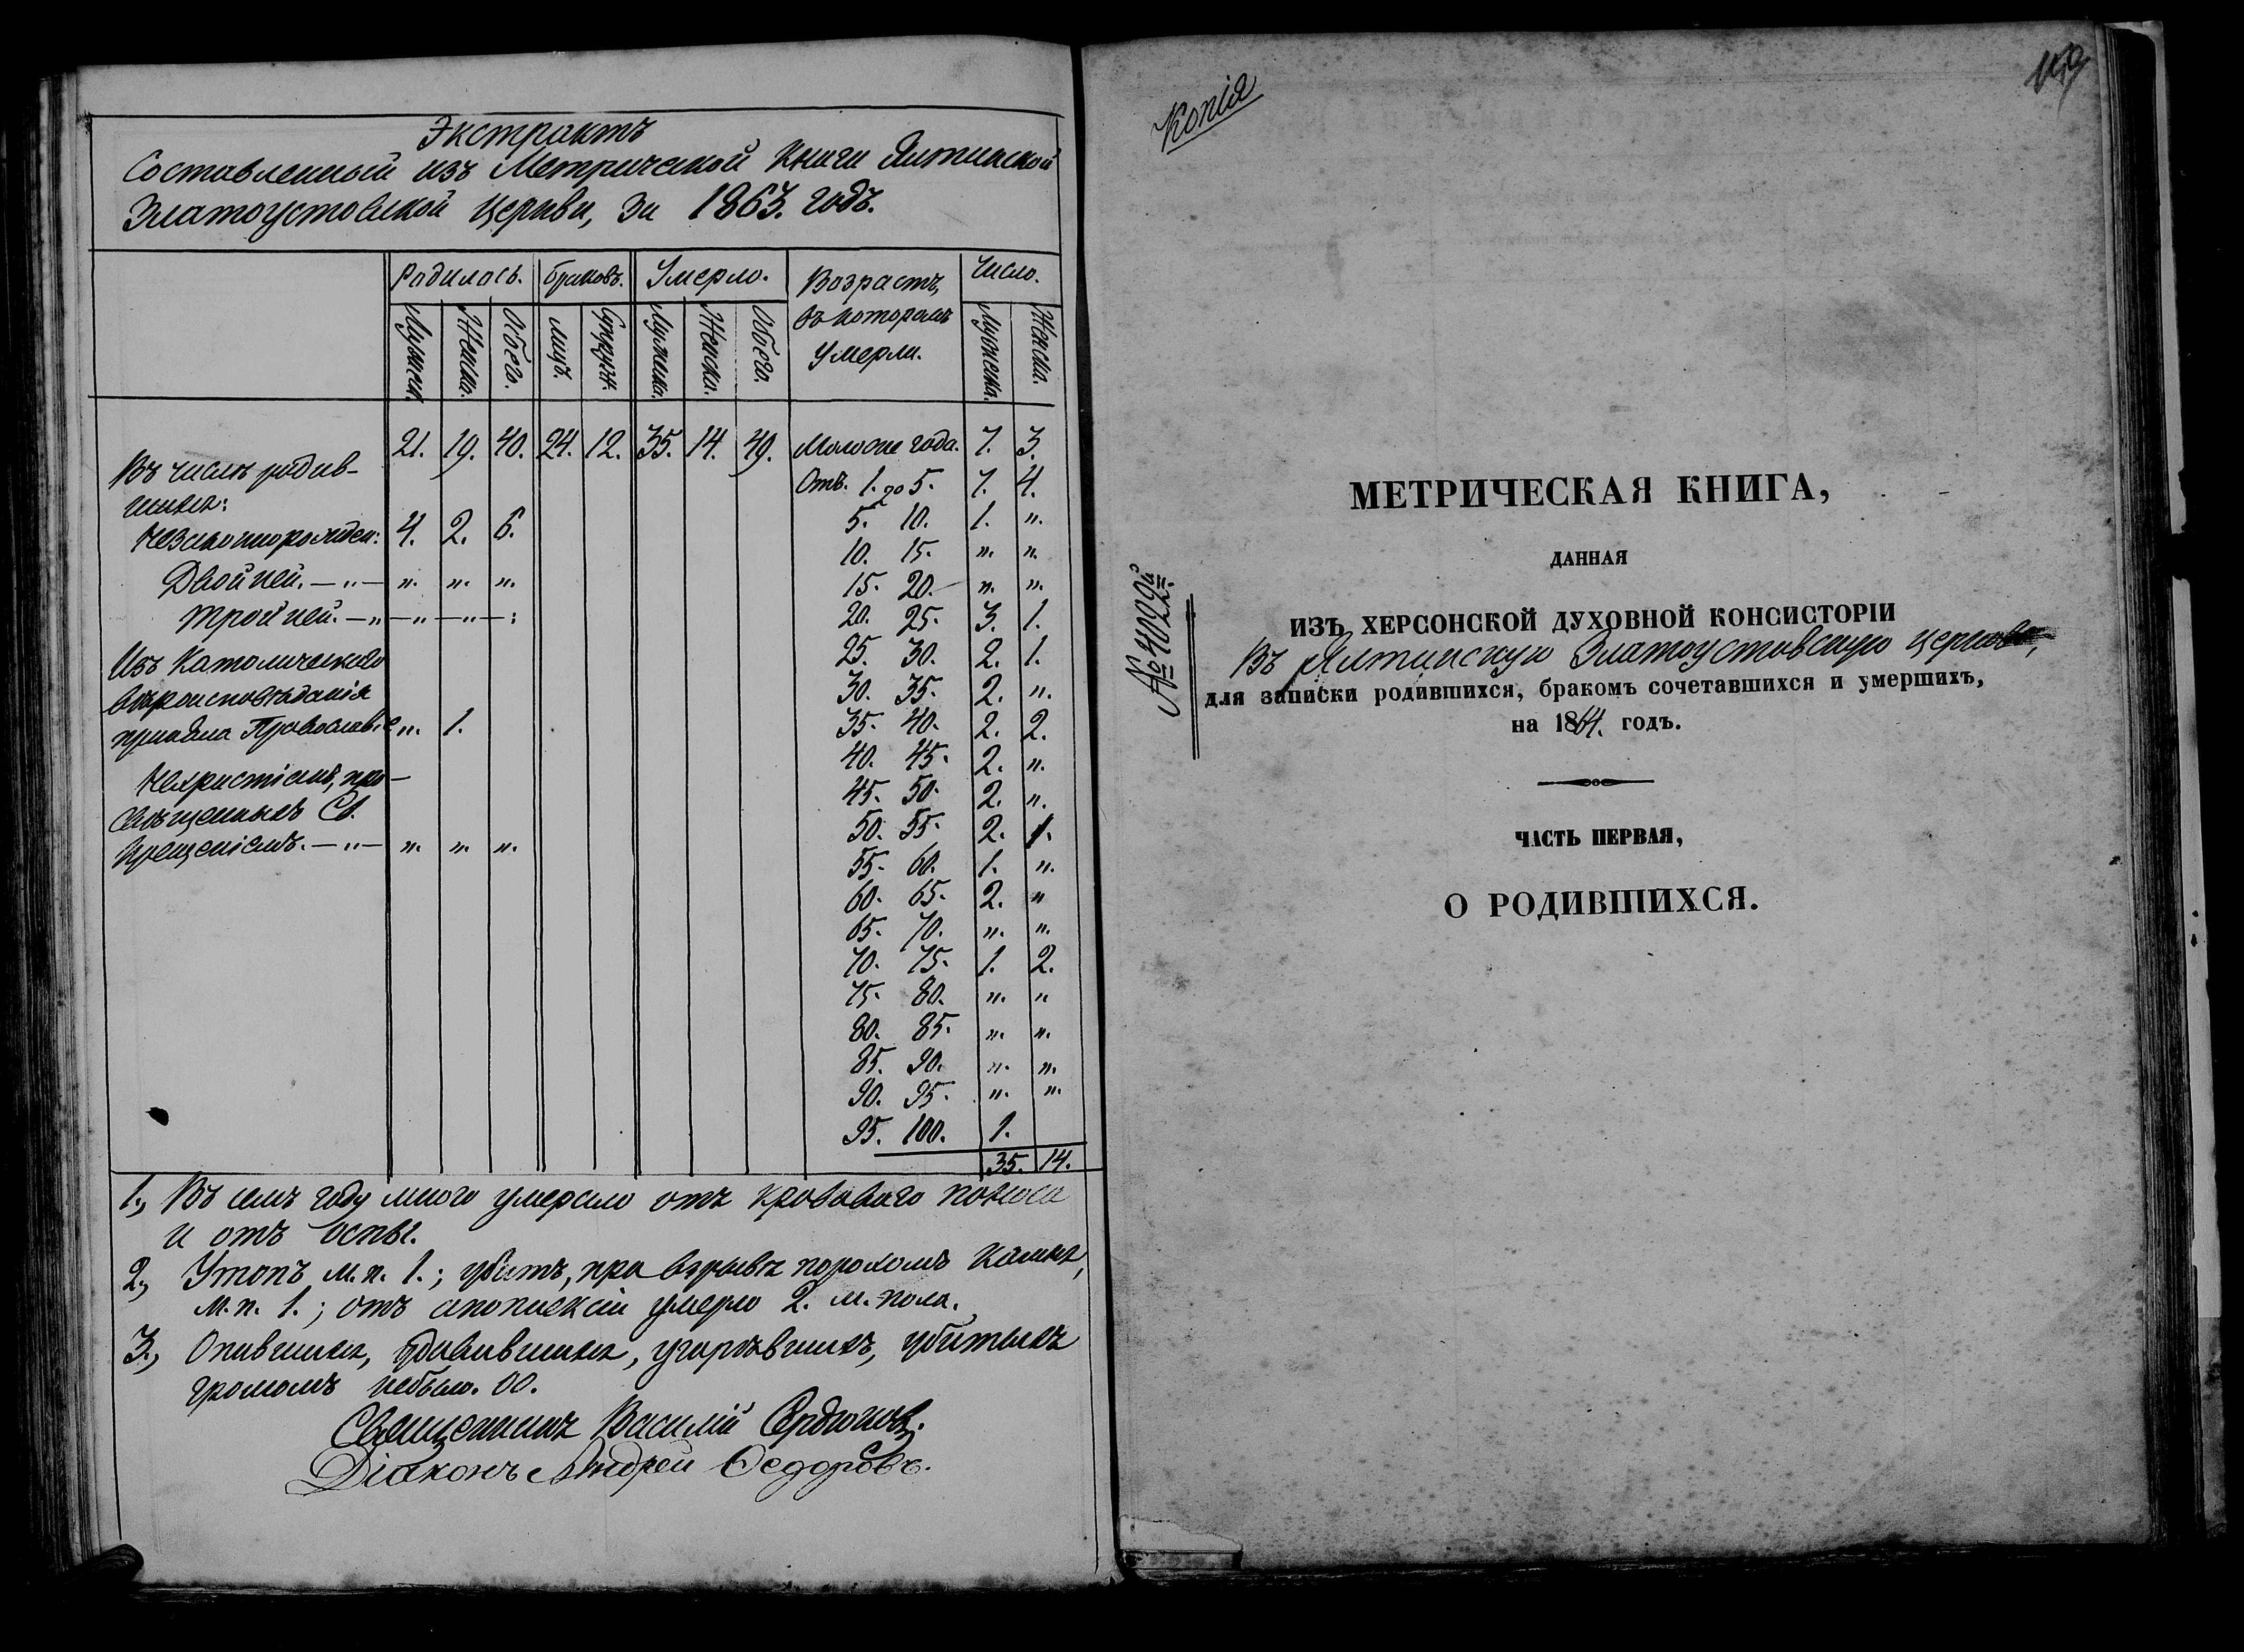 Экстрактъ
Составленный изъ Метрической Книги Ялтинской
Златоустовской Церкви, за 1863. годъ.
Родилось. Браковъ. Умерло. Возрастъ, въ которомъ умерли. Число.
Мужеск. Женска. Обего. Лицъ. Мужеска. Женска. Обего. Мужеска. Женска.
21. 19. 40. 24. 12. 35. 14. 49. Моложе года. 7. 3.
Въ числѣ родив-
шихъ:
Незаконнорожден: 4. 2. 6.
Двойней. — „ — „. „. „.
Тройней. — „ — „ — „ — :
Изъ Католическаго
вѣроисповѣданія
приняла Православіе „. 1.
Нехристіанъ, про-
свѣщенныхъ Св.
Крещеніемъ. — „ — „. „. „.
Отъ. 1. до 5. 7. 4.
5. 10. 1. „.
10. 15. „. „.
15. 20. „. „.
20. 25. 3. 1.
25. 30. 2. 1.
30. 35. 2. „.
35. 40. 2. 2.
40. 45. 2. „.
45. 50. 2. „.
50. 55. 2. 1.
55. 60. 1. „.
60. 65. 2. „
65. 70. „. „.
70. 75. 1. 2.
75. 80. „. „
80. 85. „. „.
85. 90. „. „.
90. 95. „. „.
95. 100. 1.
35. 14.
1., Въ семъ году много умерало отъ кроваваго поноса
и отъ оспы.
2., Утопъ м. п. 1.; убитъ, при взрывѣ порохомъ камня,
м. п. 1.; отъ апоплексіи умерло 2. м. пола.
3., Опившихъ, удавившихъ, угорѣвшихъ, убитыхъ
громомъ небыло. 00.
Священникъ Василій Сердюковъ.
Діаконъ Андрей Ѳедоровъ.
Копія
№ 4009й
МЕТРИЧЕСКАЯ КНИГА,
ДАННАЯ
ИЗЪ ХЕРСОНСКОЙ ДУХОВНОЙ КОНСИСТОРІИ
Въ Ялтинскую Златоустовскую церковь,
для записки родившихся, бракомъ сочетавшихся и умершихъ,
на 1864. годъ.
ЧАСТЬ ПЕРВАЯ,
О РОДИВШИХСЯ.